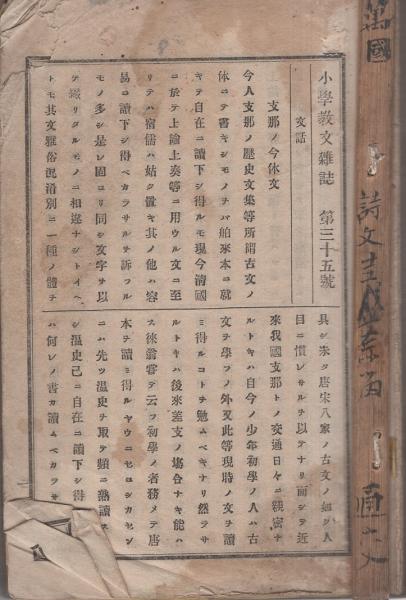 小學教文雜誌 第三十五號
文話
支那ノ今体文
今人支那ノ歴史文集等所謂古文ノ
体ニテ書キシモノナハ舶來本ニ就
キテ自在ニ讀下シ得ルモ現今淸國
ニ於テ上諭上奏等ニ用ウル文ニ至
リテハ宿儒ハ姑ク置キ其ノ他ハ容
易ニ讀下シ得ベカラサルヲ訴フル
モノ多シ是レ固ヨリ同シ文字ヲ以
テ綴リタルモノニ相違ナシトイヘ
トモ其文雅俗混淆別ニ一種ノ體ヲ
具シ未タ唐宋八家ノ古文ノ如ク人
目ニ慣レサルヲ以テナリ而シテ近
來我國支那トノ交通日々ニ親密ナ
ルトキハ自今ノ少年初學ノ人ハ古
文ヲ學フノ外又此等現時ノ文ヲ讀
ミ得ルコトヲ勉ムベキナリ然ラサ
ルトキハ後來差支ノ場合ナキ能ハ
ス徠翁嘗テ云フ初學ノ者務メテ唐
本ヲ讀ミ得ルヤウニセヨシカセン
ニハ先ツ温史ヲ取テ頻ニ熟讀ス
シ温史已ニ自在ニ讀下シ得
ハ何レノ書カ讀ムベカラサ
萬國
詩文
通文